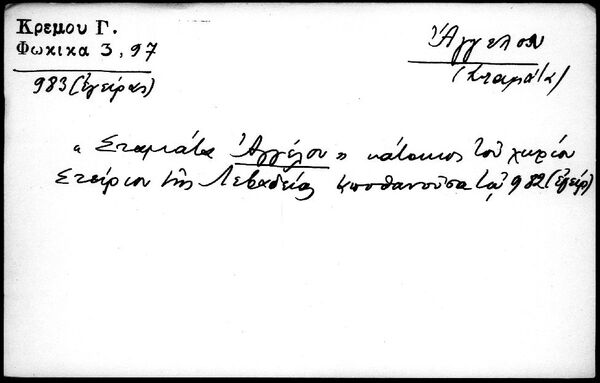 Κρεμου Γ.
Φωκικα 3, 97
983 (ἐγείρας)
Ἀγγέλου
(Σταμάτα)
« Σταμάτα Ἀγγέλου » κάτοικος τοῦ χωρίου
Στείριον τῆς Λεβαδείας ἀποθανοῦσα τῷ 982 (ἐγείρ)